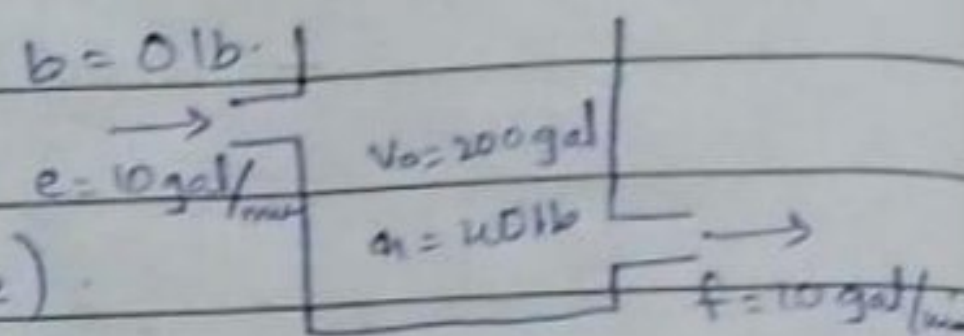 b = 0 lb.
→
e = 10 gal/min
V₀ = 200 gal
a = 40 lb
→
f = 10 gal/min
)